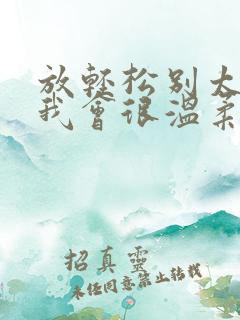 放轻松别太
我会很温柔
招真靈
未经同意禁止转载